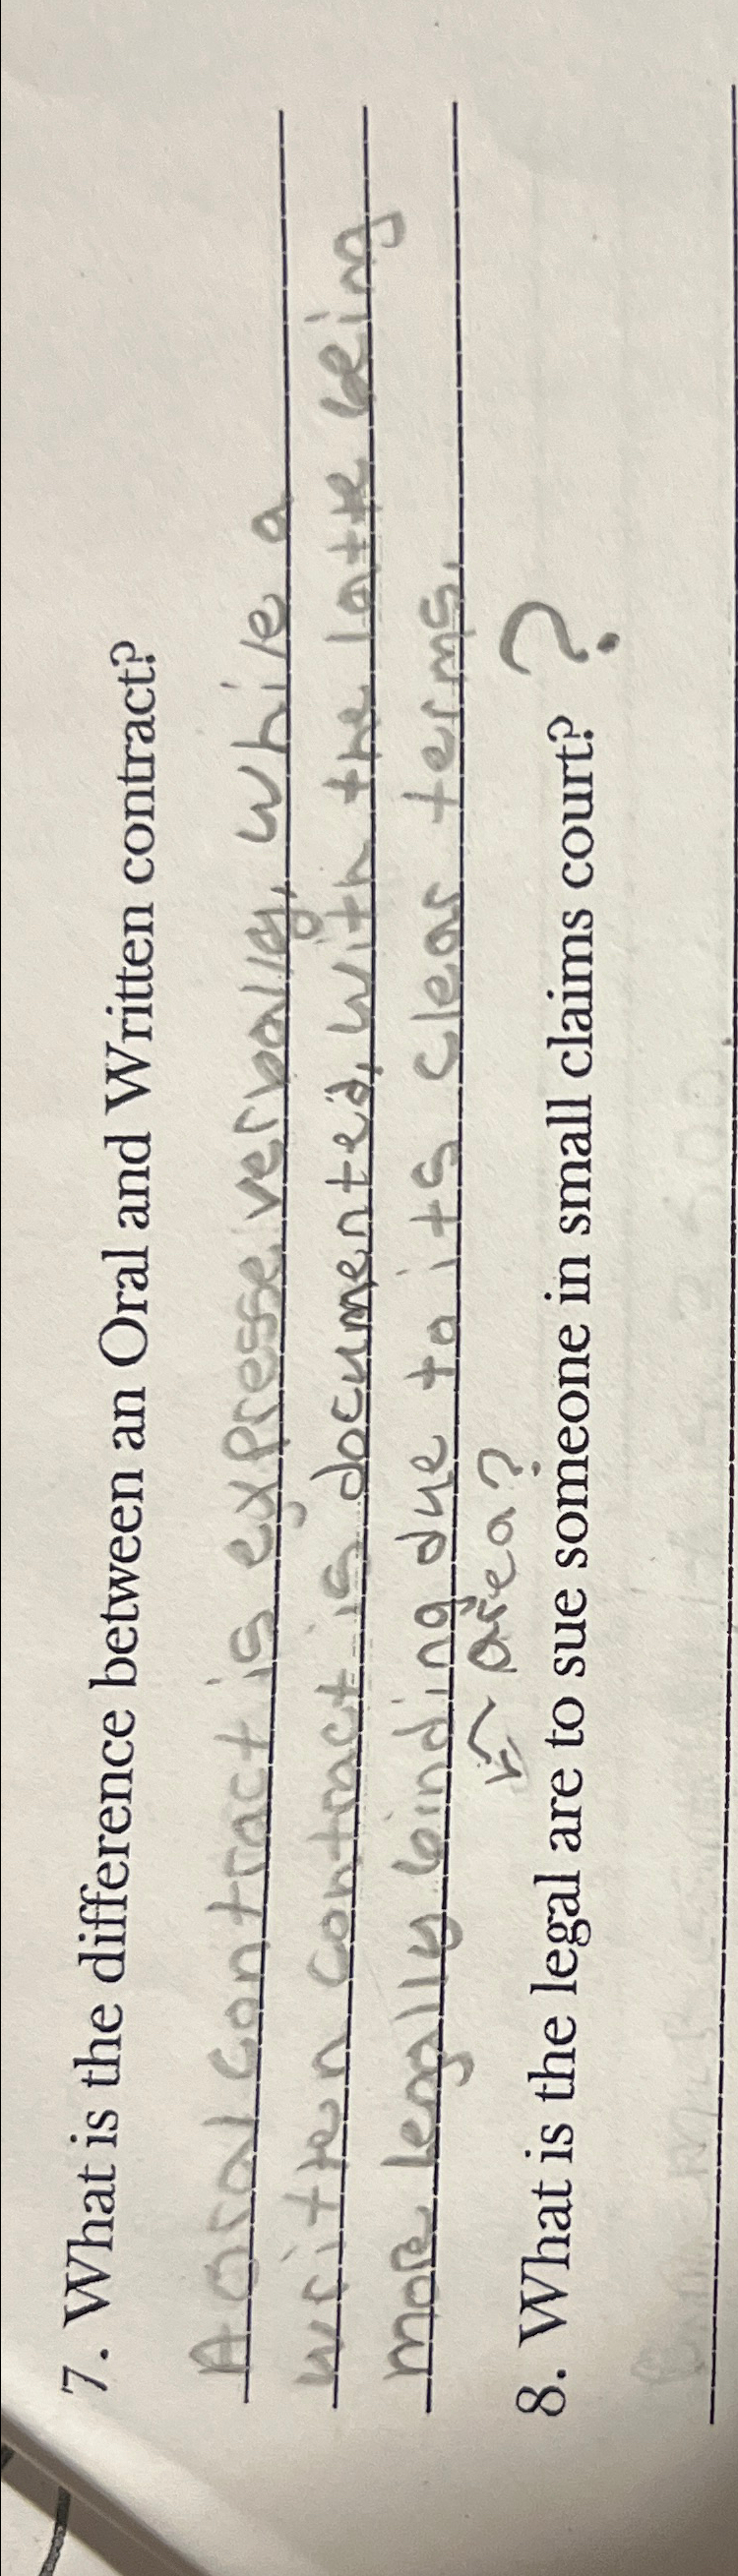 7. What is the difference between an Oral and Written contract?
A oral contract is expressed verbally, while a
written contract is documented, with the latter being
more legally binding due to its clear terms.
↖ area?
8. What is the legal are to sue someone in small claims court? ?